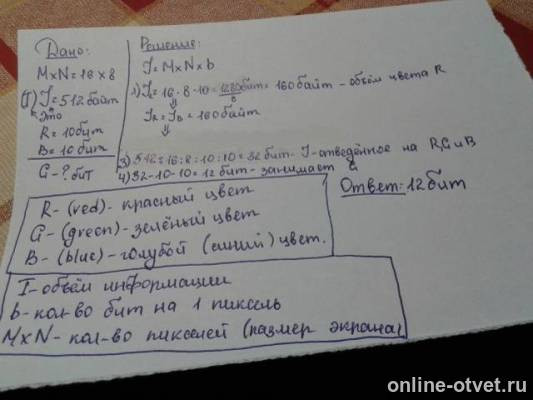 Дано:
M×N=16×8
(I) I=512байт
это
R=10бит
B=10бит
G-?бит
Решение:
I=M×N×b
2) I=16·8·10=1280бит=160байт-объём цвета R
8
I_R=I_B=160байт
3) 512=16:8:10:10=32бит-I-отведённое на R,G и B
4) 32-10-10=12бит-занимает G
Ответ: 12бит
R-(red)-красный цвет
G-(green)-зелёный цвет
B-(blue)-голубой (синий) цвет.
I-объём информации
b-кол-во бит на 1 пиксель
M×N-кол-во пикселей (размер экрана)
online-otvet.ru